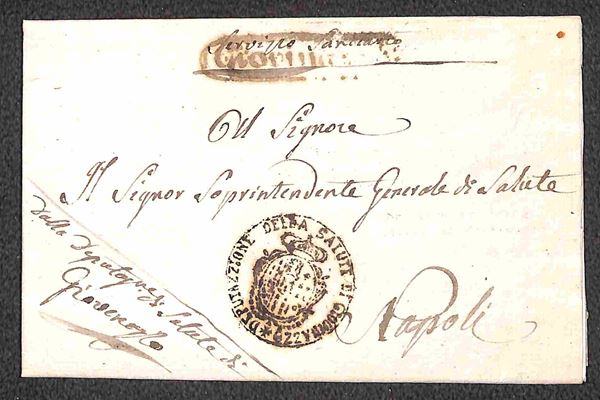 Servizio Sanitario
Giovin
All Signore
Il Signor Soprintendente Generale di Salute
Napoli
DEPUTAZIONE DELLA SALUTE DI GIOVINAZZO
Dalla Deputazne di Salute di
Giovenazzo